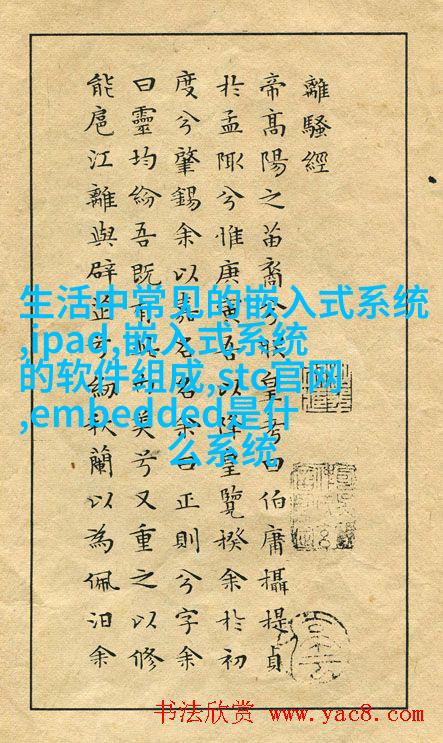 離騷經
帝高陽之苗裔兮朕皇考曰伯庸攝提貞
於孟陬兮惟庚寅吾以降皇覽揆余於初
度兮肇錫余以嘉名名余曰正則兮字余
曰靈均紛吾既有此內美兮又重之以修
能扈江離與辟芷兮紉秋蘭以為佩汨余
生活中常见的嵌入式系统
,ipad,嵌入式系统
的软件组成,stc官网
,embedded是什
么系统
书法欣赏 www.yac8.com